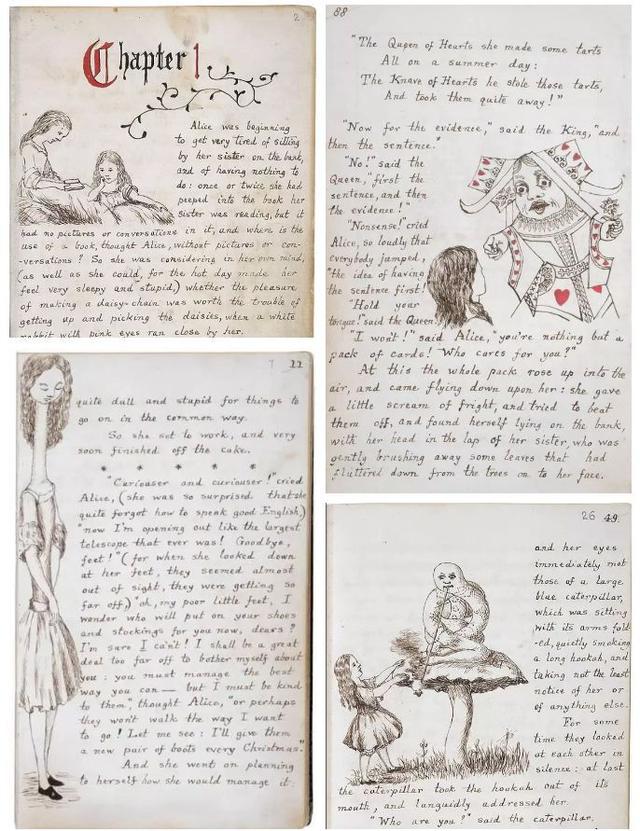 2
Chapter 1
Alice was beginning
to get very tired of sitting
by her sister on the bank,
and of having nothing to
do: once or twice she had
peeped into the book her
sister was reading, but it
had no pictures or conversations in it, and where is the
use of a book, thought Alice, without pictures or con-
-versations? So she was considering in her own mind,
(as well as she could, for the hot day made her
feel very sleepy and stupid,) whether the pleasure
of making a daisy-chain was worth the trouble of
getting up and picking the daisies, when a white
rabbit with pink eyes ran close by her.
88
"The Queen of Hearts she made some tarts
All on a summer day:
The Knave of Hearts he stole those tarts,
And took them quite away!"
"Now for the evidence," said the King, "and
then the sentence."
"No!" said the
Queen, "first the
sentence, and then
the evidence!"
"Nonsense!" cried
Alice, so loudly that
everybody jumped,
"the idea of having
the sentence first!
"Hold your
tongue!" said the Queen.
"I won't!" said Alice, "you're nothing but a
pack of cards! Who cares for you?"
At this the whole pack rose up into the
air, and came flying down upon her: she gave
a little scream of fright, and tried to beat
them off, and found herself lying on the bank,
with her head in the lap of her sister, who was
gently brushing away some leaves that had
fluttered down from the trees on to her face.
7 11
quite dull and stupid for things to
go on in the common way.
So she set to work, and very
soon finished off the cake.
* * * * *
"Curiouser and curiouser!" cried
Alice, (she was so surprised that she
quite forgot how to speak good English,)
"now I'm opening out like the largest
telescope that ever was! Goodbye,
feet!" (for when she looked down
at her feet, they seemed almost
out of sight, they were getting so
far off,) "oh, my poor little feet, I
wonder who will put on your shoes
and stockings for you now, dears?
I'm sure I can't! I shall be a great
deal too far off to bother myself about
you: you must manage the best
way you can — but I must be kind
to them," thought Alice, "or perhaps
they won't walk the way I want
to go! Let me see: I'll give them
a new pair of boots every Christmas."
And she went on planning
to herself how she would manage it:
26 49.
and her eyes
immediately met
those of a large
blue caterpillar,
which was sitting
with its arms fold-
-ed, quietly smoking
a long hookah, and
taking not the least
notice of her or
of anything else.
For some
time they looked
at each other in
silence: at last
the caterpillar took the hookah out of its
mouth, and languidly addressed her.
"Who are you?" said the caterpillar.